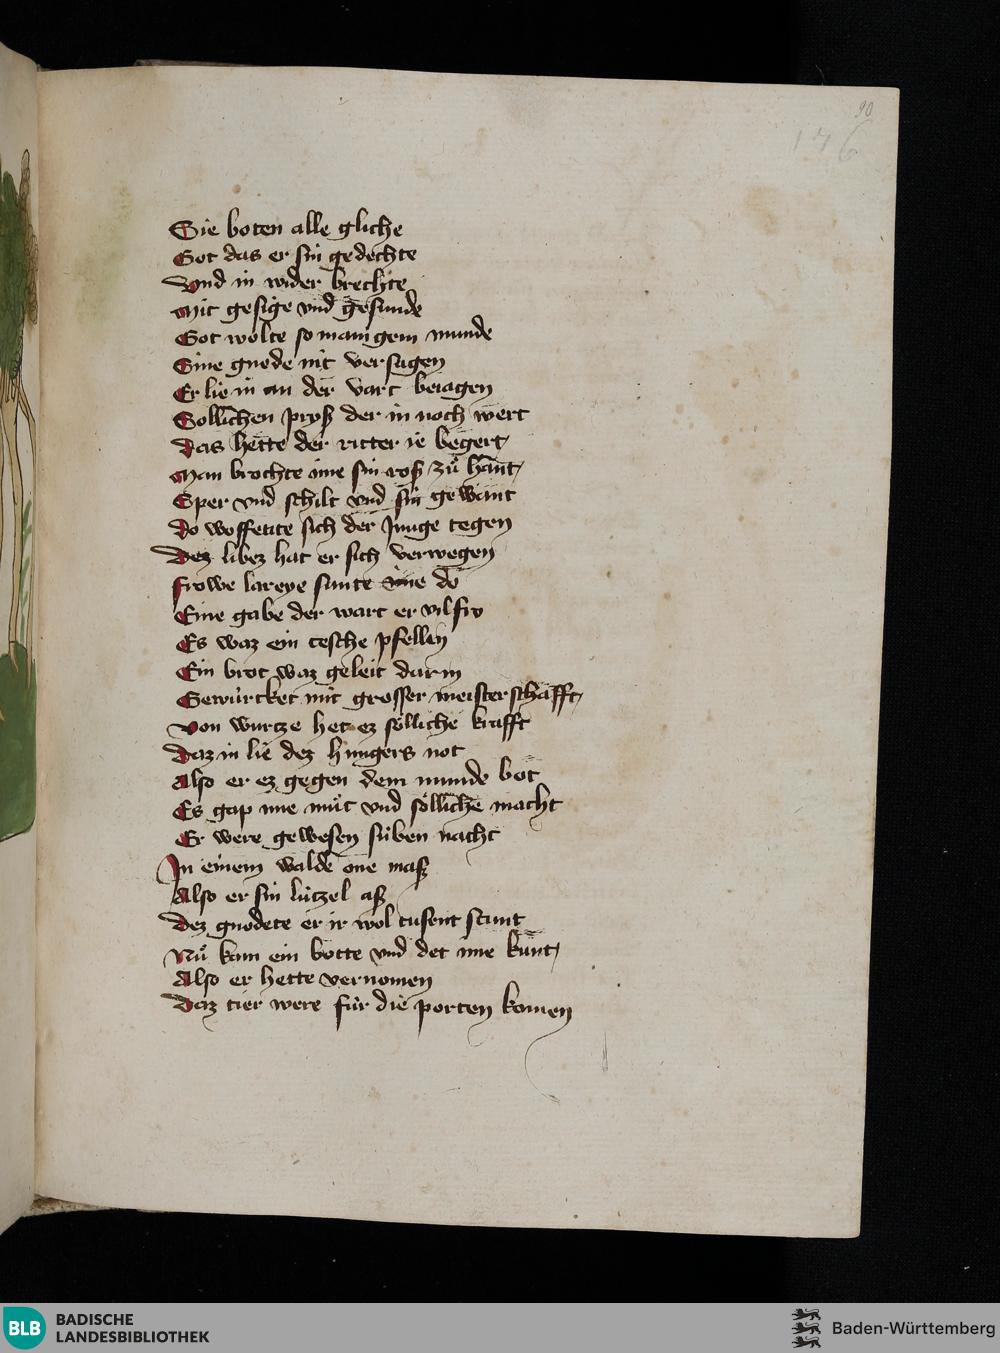 90
176
Sie boten alle gliche
Got das er sin gedechte
Vnd in wider brechte
Mit gesige vnd gesunde
Got wolte so manigem munde
Sine gnode nit versagen
Er lie in an der vart beiagen
Sollichen pryß der in noch wert
Das hette der ritter ie begert
Man brochte ime sin roß zů hant
Sper vnd schilt vnd sin gewant
Do woffente sich der Junge tegen
Dez libez hat er sich verwegen
frowe lareye sante ime do
Eine gabe der wart er vil fro
Es waz ein tesche pfellin
Ein brot waz geleit darin
Gewürcket mit grosser meisterschafft
Von wurtze het ez sölliche krafft
Daz in lie dez hungers not
Also er ez gegen dem munde bot
Es gap ime můt vnd sölliche macht
Er were gewesen süben nacht
In einem walde one maß
Also er sin lützel aß
Dez gnodete er ir wol tusent stunt
Nů kam ein botte vnd det ime kunt
Also er hette vernomen
Daz tier were für die porten komen
BLB BADISCHE
LANDESBIBLIOTHEK
Baden-Württemberg